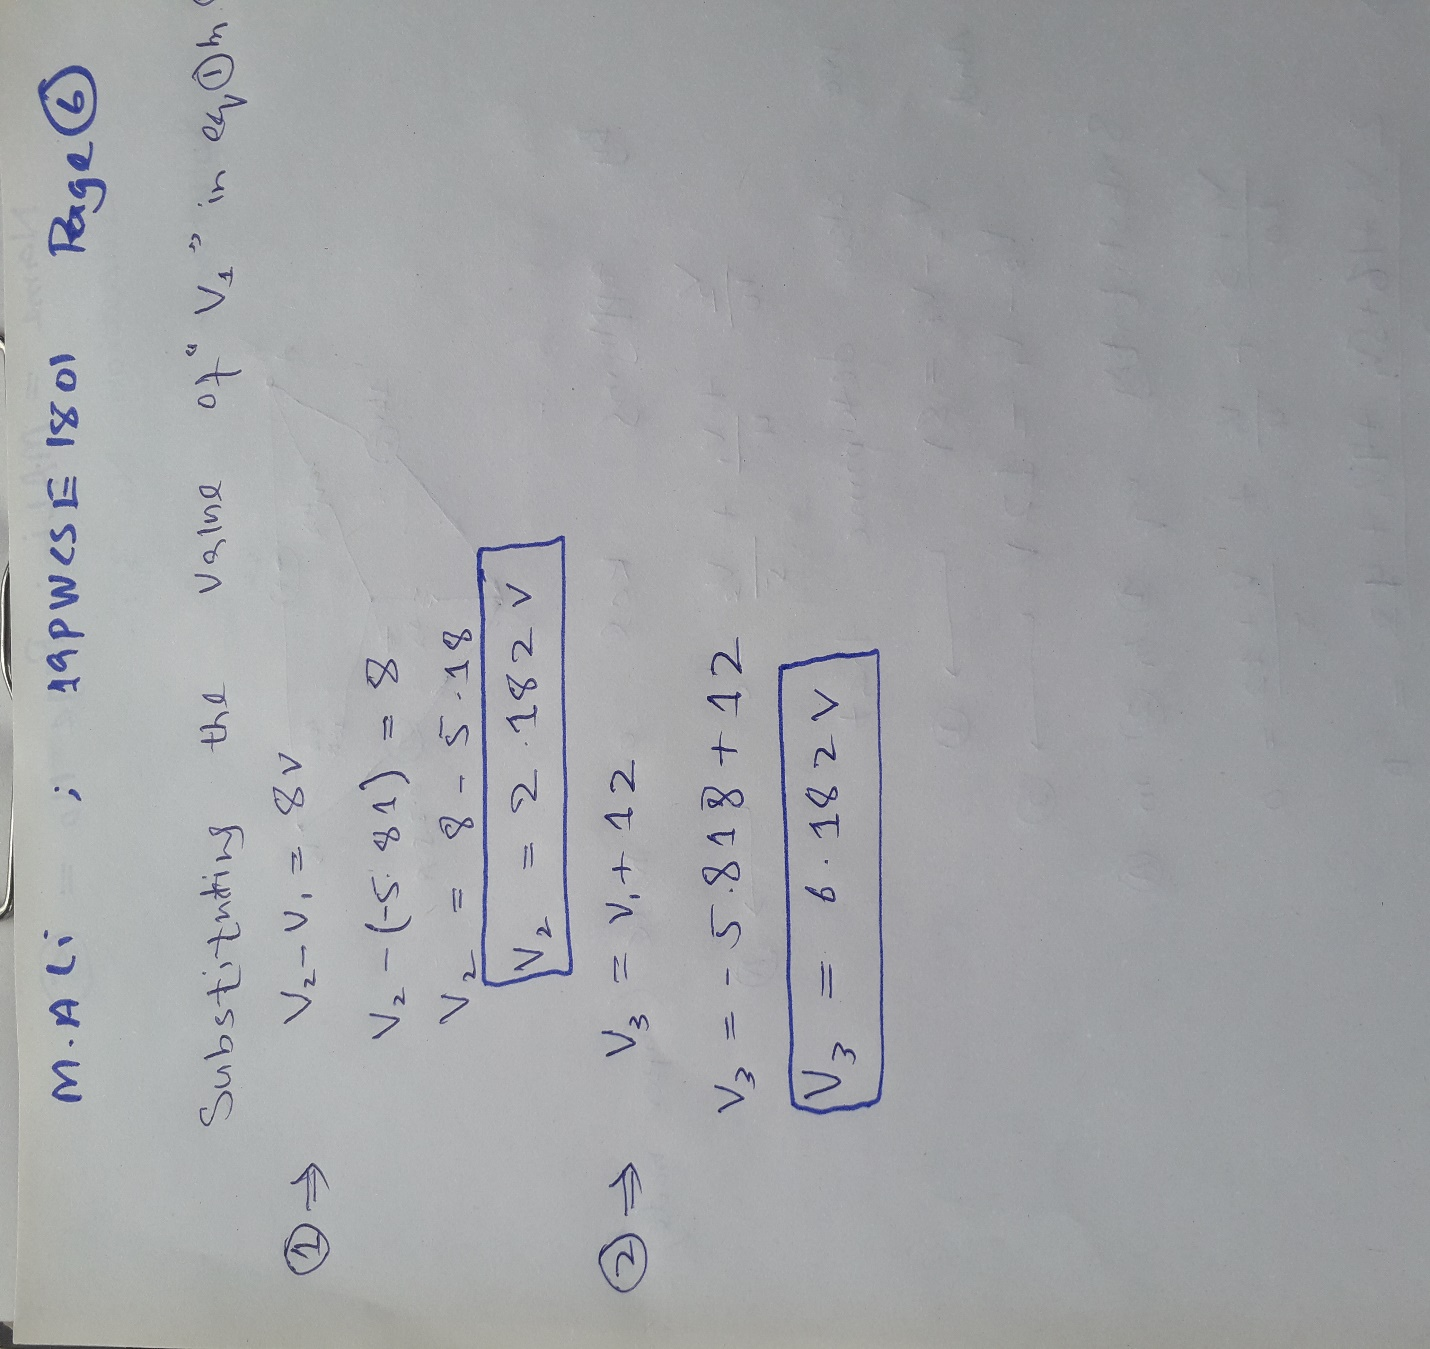 M.ALi ; 19PWCSE1801 Page 6
Substituting the value of "V₁" in eq ①
① ⇒ V₂ - V₁ = 8V
V₂ - (-5.81) = 8
V₂ = 8 - 5.18
V₂ = 2.182 V
② ⇒ V₃ = V₁ + 12
V₃ = - 5.818 + 12
V₃ = 6.182 V